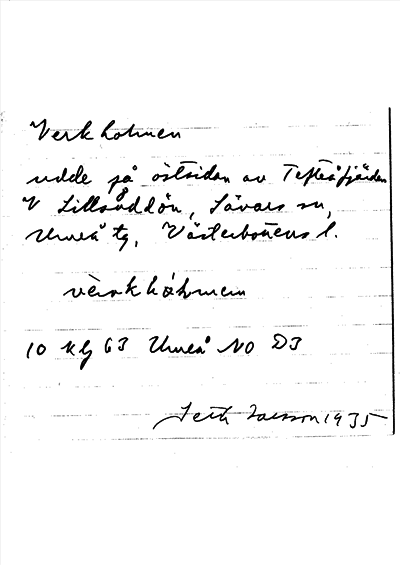 Verkholmen
udde på östsidan av Tefteåfjärden
V Lillsåddön, Sävars sn,
Umeå tg, Västerbottens l.
vèrkhólmen
10 kb 63 Umeå NO D3
Seth Larsson 1935